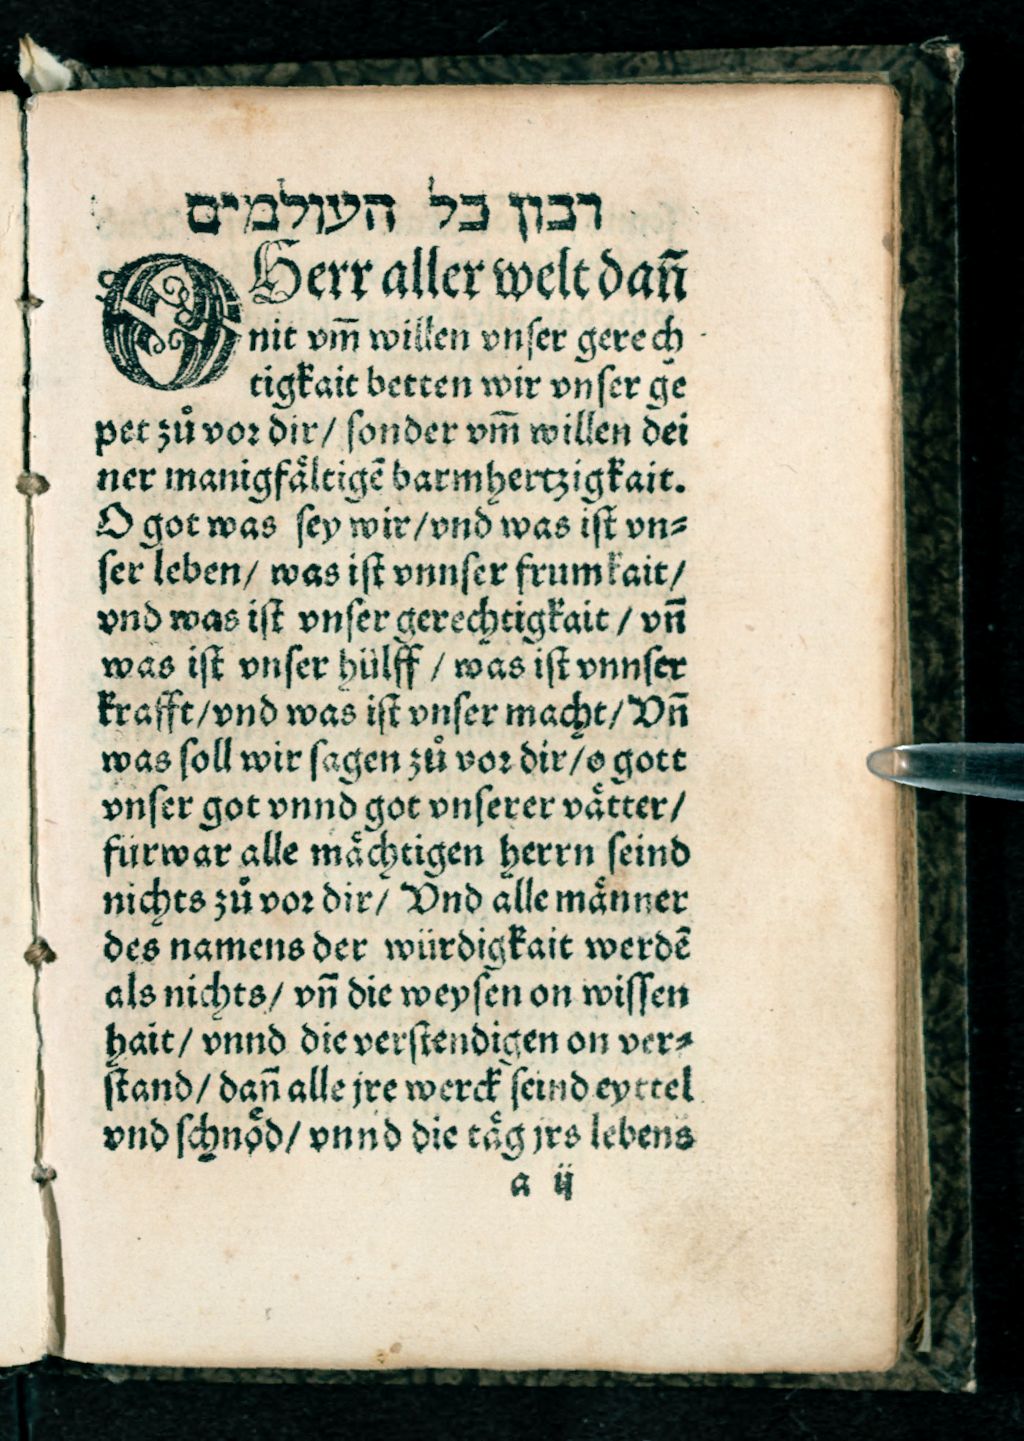 רבון כל העולמים
O Herr aller welt dañ
nit vm̃ willen vnser gerech
tigkait betten wir vnser ge
pet zů vor dir/ sonder vm̃ willen dei
ner manigfaͤltigẽ barmhertzigkait.
O got was sey wir/vnd was ist vn⸗
ser leben/ was ist vnnser frumkait/
vnd was ist vnser gerechtigkait / vñ
was ist vnser hülff / was ist vnnser
krafft/vnd was ist vnser macht/ Vñ
was soll wir sagen zů vor dir/o gott
vnser got vnnd got vnserer vaͤtter/
fürwar alle maͤchtigen herrn seind
nichts zů vor dir/ Vnd alle maͤnner
des namens der würdigkait werdẽ
als nichts/ vñ die weysen on wissen
hait/ vnnd die verstendigen on ver⸗
stand/ dañ alle jre werck seind eyttel
vnd schnoͤd/ vnnd die taͤg jrs lebens
a ij